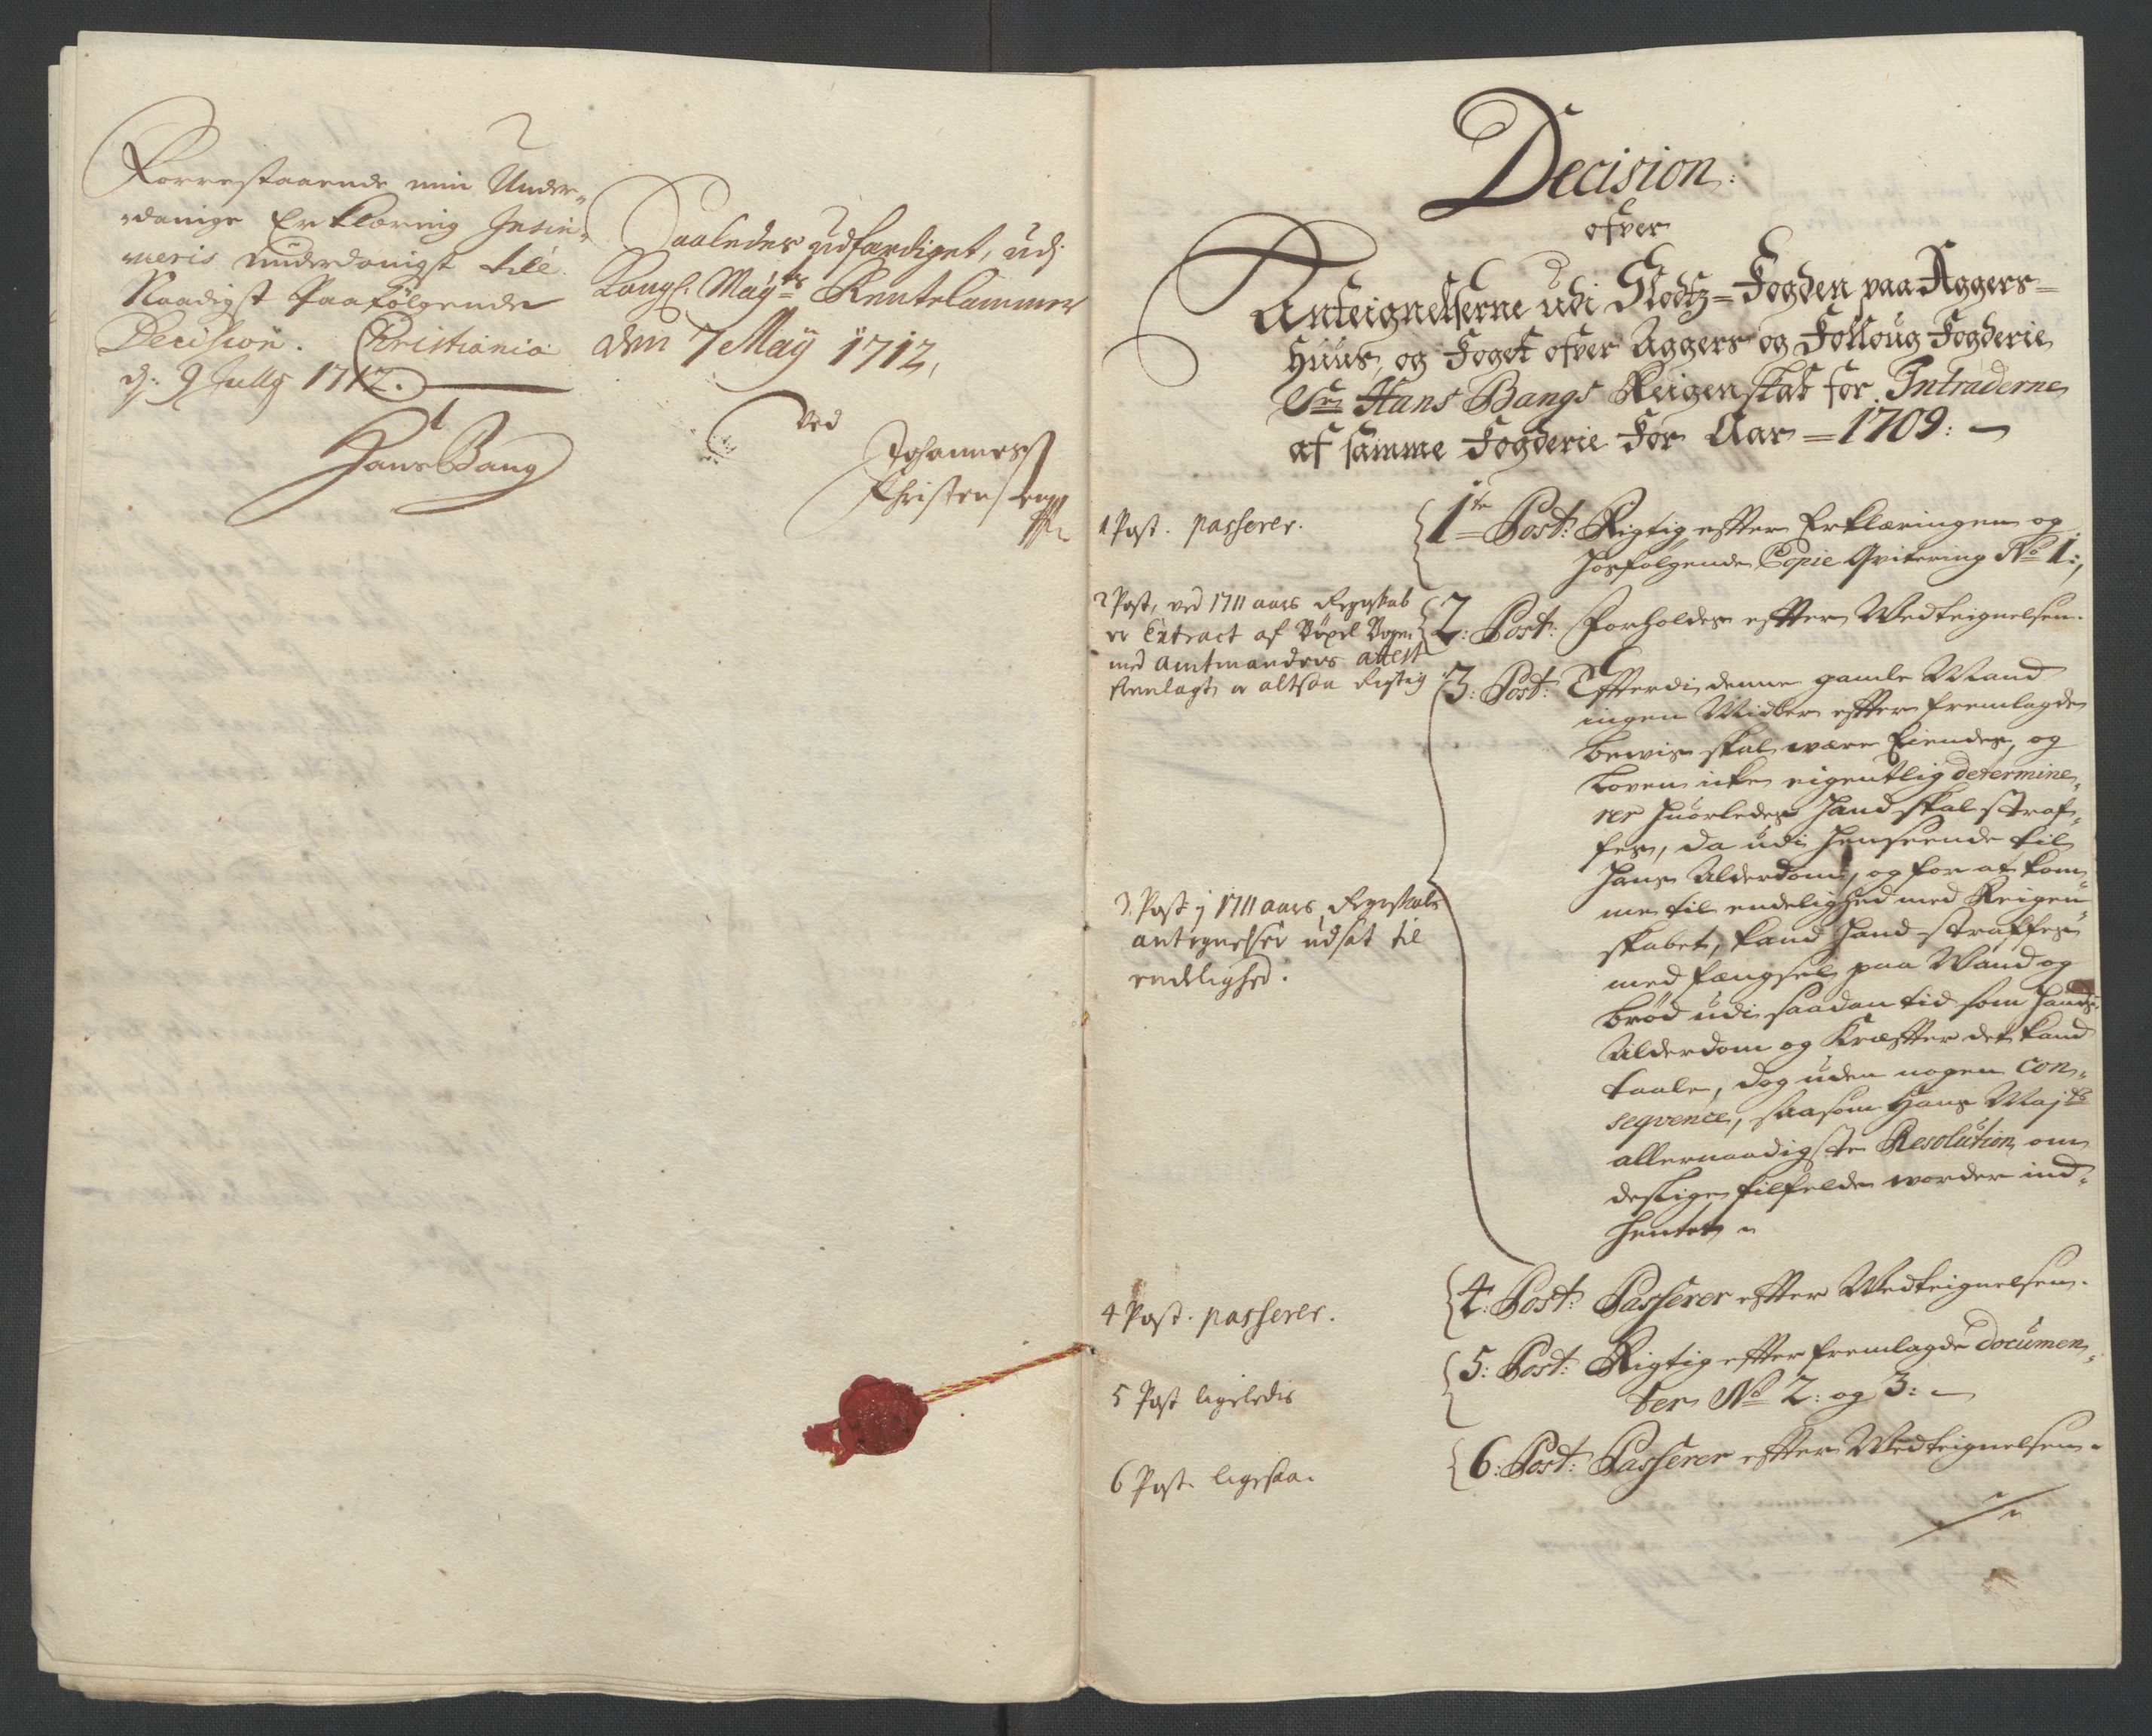 Forrestaaende min Under-
danige Erklæring Insin-
ueris underdanigst till
Naadigst Paafølgende
Decision. Christiania
d: 9 Jully 1712.
Hans Bang
Saaledes udfærdiget, udj
Kongl: May.ts Rentekammer
den 7 May 1712,
Ved
Johannes
Christensen
Decision:
ofver
Anteignelserne udi Slodtz-Fogden paa Aggers-
Huus, og Foget ofver Aggers og Folloug Fogderie
Sr. Hans Bangs Reigenskab for Intraderne
af samme Fogderie for Aar = 1709:
1 Post. passerer.
1te Post: Rigtig effter Erklæringen og
hosfølgende Copie Qvitering No 1:,
2 Post, ved 1711 aars Regnskab
er Extract af
med amtmandens attest
fremlagt, er altsaa Rigtig
2: Post: Forholdes effter Wedteignelsen.
3: Post: Effterdi denne gamle Mand
ingen Midler effter fremlagde
bewis skal være Eiendes, og
Loven icke eigentlig determine-
rer huorledes hand skal straf-
fes, da udi henseende til
hans Alderdom, og for at kom-
me til endelighed med Reigen-
skabet, kand hand straffes
med fængsel paa Wand og
brød udi saadan tid som hands
Alderdom og Kræffter det kand
taale, dog uden nogen con-
seqvence, saasom Hans Majts
allernaadigste Resolution om
deslige tilfelde worder ind-
hentet
3. Post j 1711 aars Regnskabs
antegnelser udsat til
endelighed.
4 Post. passerer.
4: Post: Passerer effter Wedteignelsen.
5 Post ligeledis
5: Post: Rigtig effter fremlagde documen-
ter No 2: og 3:
6 Post. ligesaa.
6: Post: Passerer effter Wedteignelsen